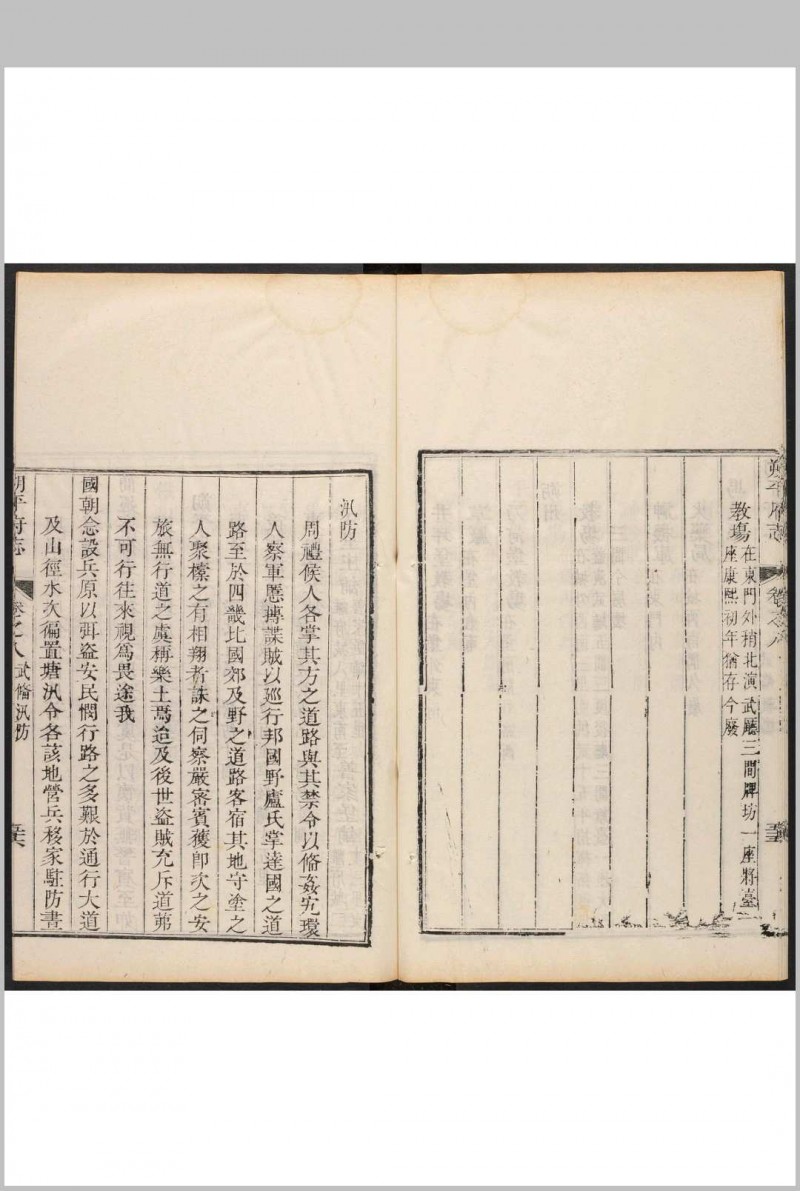 朔平府志
卷之八
教塲在東門外稍北演武廳三間牌坊一座將臺
座康熙初年猶存今廢
汛防
周禮候人各掌其方之道路與其禁令以脩姦宄環
人察軍慝摶諜賊以廵行邦國野廬氏掌達國之道
路至於四畿比國郊及野之道路客宿其地守塗之
人聚檬之有相翔者誅之伺察嚴密賓獲卽次之安
旅無行道之虞稱樂土焉迨及後世盜賊充斥道茀
不可行往來視爲畏途我
國朝念設兵原以弭盜安民憫行路之多艱於通行大道
及山徑水次徧置塘汛令各該地營兵移家駐防晝
朔平府志
卷之八
武脩汛防